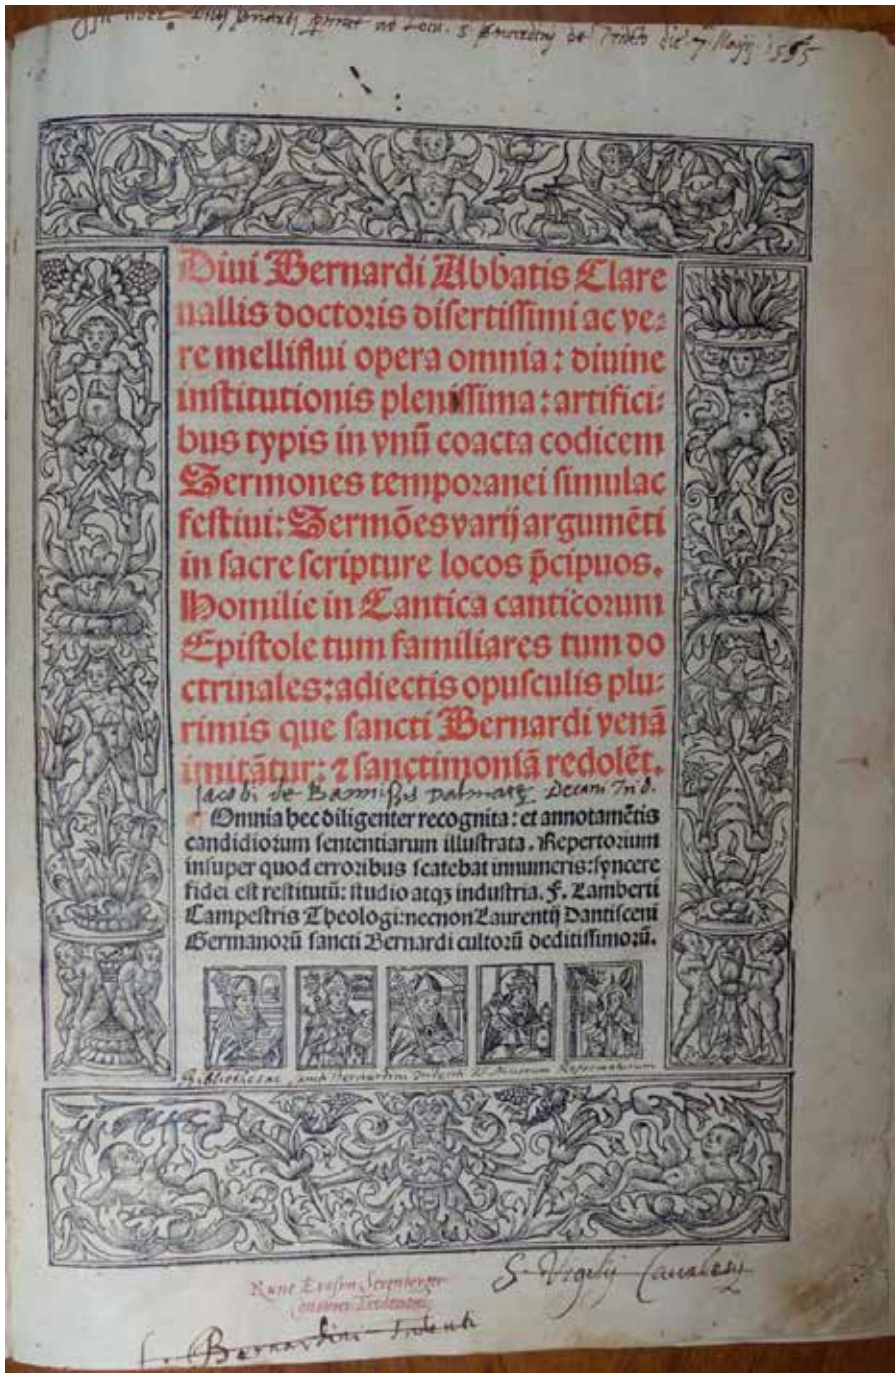 liber Divi ad Locu. s de die 7 Maij 1595
Diui Bernardi Abbatis Clare
uallis doctoris disertissimi ac ve⸗
re melliflui opera omnia : diuine
institutionis plenissima : artifici⸗
bus typis in vnũ coacta codicem
Sermones temporanei simulac
festiui : Sermões varij argumẽti
in sacre scripture locos p̃cipuos.
Homilie in Cantica canticorum
Epistole tum familiares tum do
ctrinales : adiectis opusculis plu⸗
rimis que sancti Bernardi venã
imitãtur : ⁊ sanctimoniã redolẽt.
Jacobi de Bannissis Dalmatę Decani Trid.
Omnia hec diligenter recognita : et annotamẽtis
candidiorum sententiarum illustrata. Repertorium
insuper quod erroribus scatebat innumeris : syncere
fidei est restitutũ : studio atqꝫ industria. F. Lamberti
Campestris Theologi : necnon Laurentij Dantisceni
Germanorũ sancti Bernardi cultorũ deditissimorũ.
Bibliothecae Bernardini Reformatorum
S. Vigilij Caualesij
Nunc
Tridentini
S. Bernardini Tridenti